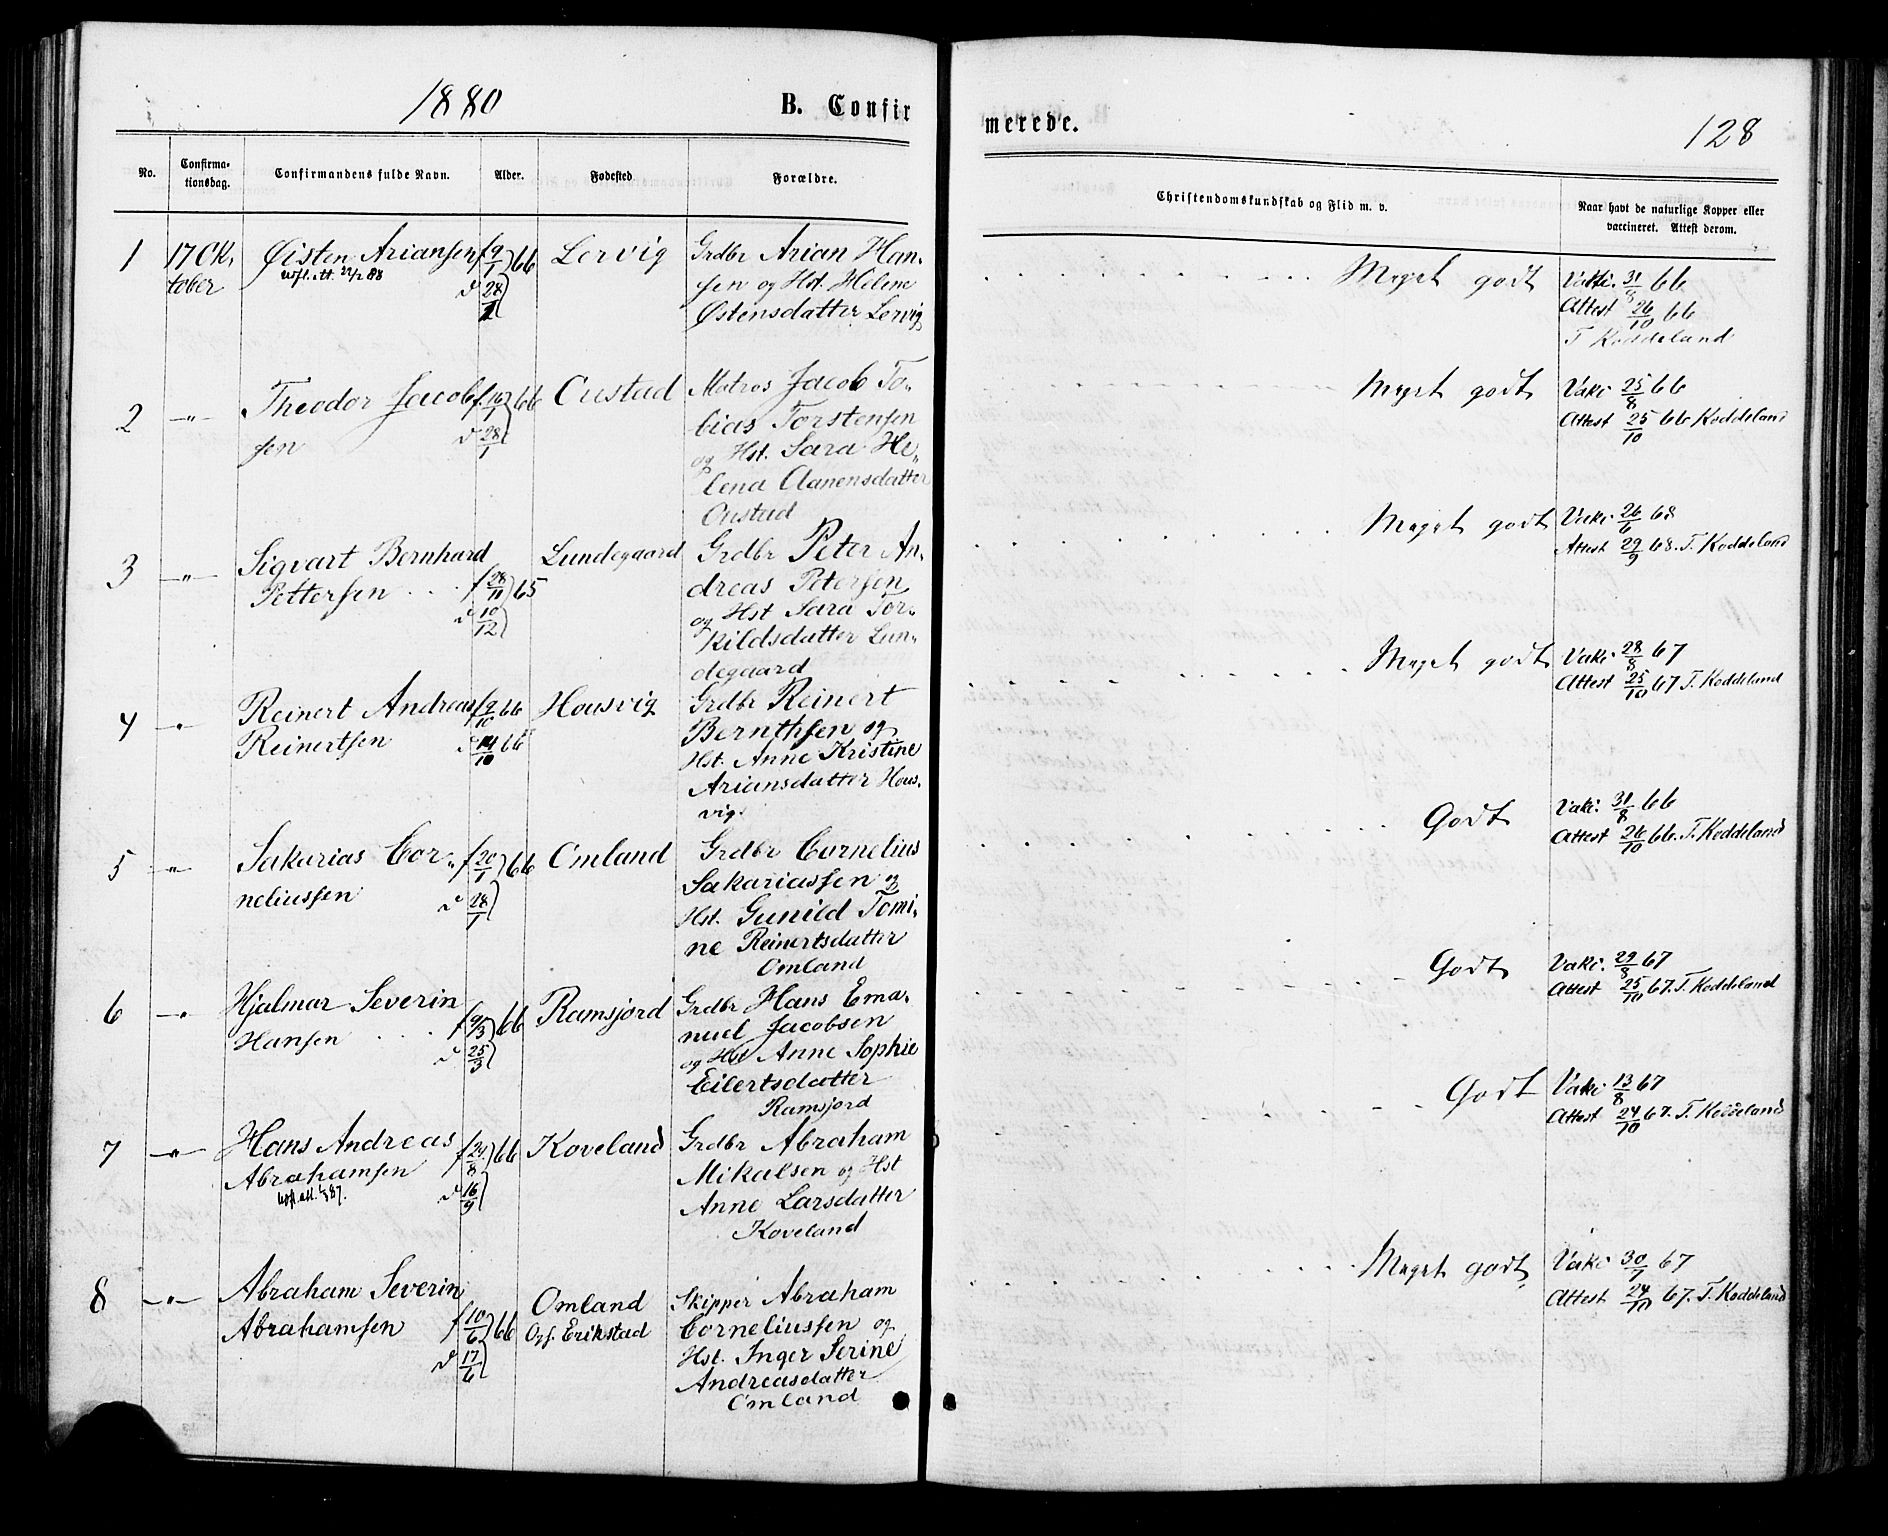 1880
B. Confir
merede.
128
No.
Confirma-
tionsdag.
Confirmandens fulde Navn.
Alder.
Fødested
Forældre.
Christendomskundskab og Flid m. v.
Naar havt de naturlige Kopper eller
vaccineret. Attest derom.
1 17 Ok- Østen Ariansen f 9/1 66 Lervig Grdbr Arian Han-
tober att. 88 d 28/1 sen og Hst. Helene
Østensdatter Lervig
Meget godt Vakc. 31/8 66
Attest 26/10 66
T Koddeland
2 -"- Theodor Jacob- f 16/1 66 Onstad Matros Jacob To-
sen d 28/1 bias Torstensen
og Hst. Sara He-
lena Aanensdatter
Onstad
Meget godt Vakc 25/8 66
Attest 25/10 66 Koddeland
3 -"- Sigvart Bernhard Lundegaard Grdbr Peter An-
Pettersen f 28/11 65 dreas Petersen
d 10/12 og Hst Sara Tor-
kildsdatter Lun-
degaard
Meget godt Vakc 26/6 68
Attest 29/9 68. T. Koddeland
4 -"- Reinert Andreas f 9/10 66 Housvig Grdbr Reinert
Reinertsen d 14/10 66 Bernthsen og
Hst. Anne Kristine
Ariansdatter Hous-
vig.
Meget godt Vakc 28/8 67
Attest 25/10 67 T. Koddeland
5 -"- Sakarias Cor- f 20/1 66 Omland Grdbr Cornelius
neliussen d 28/1 Sakariassen og
Hst. Gunild Tomi-
ne Reinertsdatter
Omland
Godt Vakc. 31/8 66
Attest 26/10 66. T. Koddeland
6 -"- Hjalmar Severin Ramsjord Grdbr Hans Ema-
Hansen f 9/3 66 nuel Jacobsen
d 25/3 og Hst Anne Sophie
Eilertsdatter
Ramsjord
Godt Vakc. 29/8 67
Attest 25/10 67. T. Koddeland
7 -"- Hans Andreas f 24/8 66 Koveland Grdbr Abraham
Abrahamsen d 16/9 Mikalsen og Hst
att. 87. Anne Larsdatter
Koveland
Godt Vakc 13/8 67
Attest 24/10 67. T. Koddeland
8 -"- Abraham Severin Omland Skipper Abraham
Abrahamsen f 10/6 66 Opf. Erikstad Corneliussen og
d 17/6 Hst. Inger Serine
Andreasdatter
Omland
Meget godt Vakc 30/7 67
Attest 24/10 67. T. Koddeland